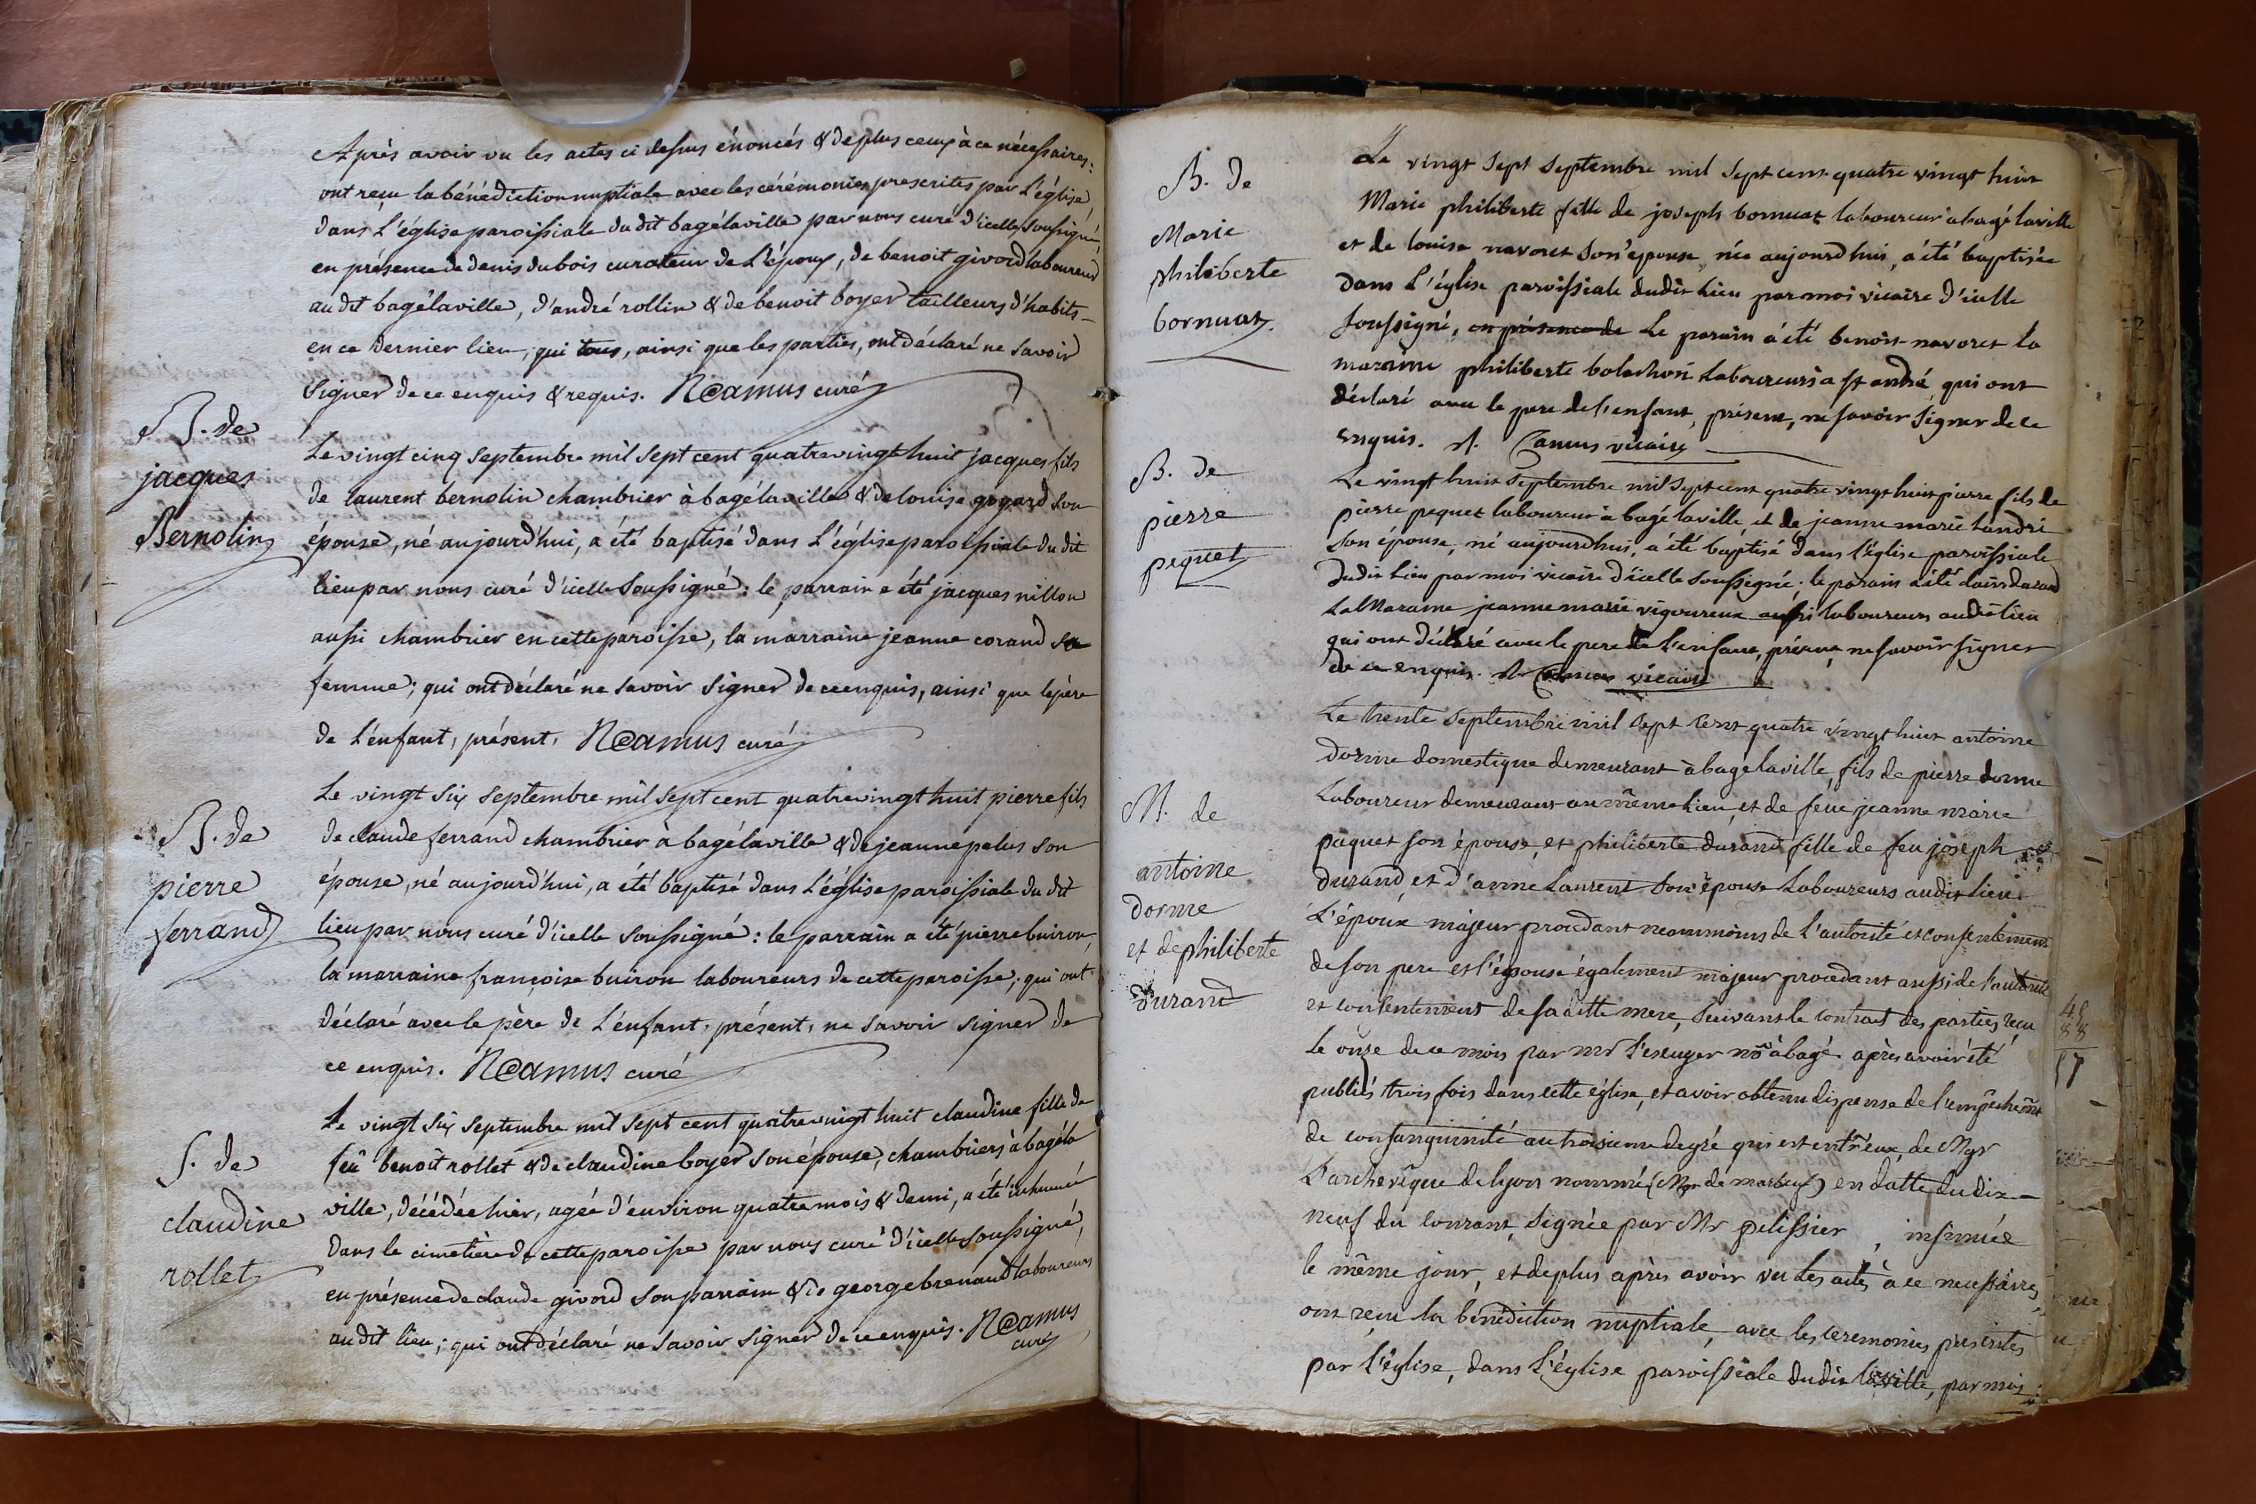 Après avoir vu les actes ci dessus énoncés & de plus ceux à ce nécessaires:
ont reçu la bénédiction nuptiale avec les cérémonies prescrites par L'église
dans L'église paroissiale du dit bagélaville par nous curé d'icelle soussigné,
en présence de denis dubois curateur de L'époux, de benoit givord laboureur
au dit bagélaville, d'andré rollin & de benoit boyer tailleurs d'habits
en ce dernier lieu; qui tous, ainsi que les parties, ont déclaré ne savoir
signer de ce enquis & requis. N Camus curé
B. de
jacques
Bernolin
Le vingt cinq septembre mil sept cent quatre vingt huit jacques fils
de laurent bernolin chambrier à bagélaville & de louise gogard son
épouse, né aujourd'hui, a été baptisé dans L'église paroissiale du dit
lieu par nous curé d'icelle soussigné: le parrain a été jacques nillon
aussi chambrier en cette paroisse, la marraine jeanne corand sa
femme; qui ont déclaré ne savoir signer de ce enquis, ainsi que le père
de L'enfant, présent. N Camus curé
B. de
pierre
ferrand
Le vingt six septembre mil sept cent quatre vingt huit pierre fils
de claude ferrand chambrier à bagélaville & de jeanne pelus son
épouse, né aujourd'hui, a été baptisé dans L'église paroissiale du dit
lieu par nous curé d'icelle soussigné: le parrain a été pierre buiron,
la marraine françoise buiron laboureurs de cette paroisse; qui ont
déclaré avec le père de L'enfant, présent, ne savoir signer de
ce enquis. N Camus curé
S. de
claudine
rollet
Le vingt six septembre mil sept cent quatre vingt huit claudine fille de
feu benoît rollet & de claudine boyer son épouse, chambriers à bagéla
ville, décédée hier, agée d'environ quatre mois & demi, a été inhumée
dans le cimetière de cette paroisse par nous curé d'icelle soussigné,
en présence de claude givord son parrain & de george brenaud laboureurs
au dit lieu; qui ont déclaré ne savoir signer de ce enquis. N Camus
curé
B. de
Marie
philiberte
bornuat
Le vingt sept septembre mil sept cent quatre vingt huit
Marie philiberte fille de joseph bornuat laboureur a bagé laville
et de louise navoret son épouse, née aujourd hui, a été baptisée
dans L'église paroissiale dudit lieu par moi vicaire d'icelle
soussigné, en présence de Le parain a été benoit navoret la
maraine philiberte bolachon laboureurs a st andré qui ont
déclaré avec le pere de l'enfant, présent, ne savoir signer de ce
enquis. A. Camus vicaire
B. de
pierre
pequet
Le vingt huit septembre mil sept cent quatre vingt huit pierre fils de
pierre pequet laboureur à bagé laville et de jeanne marie Landré
son épouse, né aujourdhui, a été baptisé dans l'église paroissiale
dudit Lieu par moi vicaire d'icelle soussigné. le parain a été durand
La Maraine jeanne marie vigoureux aussi laboureurs audit lieu
qui ont déclaré avec le pere de l'enfant, présent, ne savoir signer
de ce enquis. A Camus vicaire
M. de
antoine
dorme
et de philiberte
durand
Le trente septembre mil sept cent quatre vingt huit antoine
dorme domestique demeurant à bagé laville, fils de pierre dorme
Laboureur demeurant au même lieu, et de feue jeanne marie
paquet son épouse, et philiberte durand fille de feu joseph
durand et d'anne Laurent son épouse Laboureurs audit lieu
L'époux majeur procedant neanmoins de l'autorité et consentement
de son pere et l'épouse également majeur procedant aussi de l'autorité
et consentement de sa ditte mere, suivant le contract des parties reçu
le onze de ce mois par mr l'escuyer nre à bagé après avoir été
publiés trois fois dans cette église, et avoir obtenu dispense de l'empêchemt
de consanguinité au troisieme degré qui est entr'eux, de Mgr
L'archevêque de lyon nommé (Mgr de marbeuf) en datte du dix
neuf du courant, signée par Mr pelissier, insinuée
le même jour, et de plus après avoir vu Les actes à ce necessaires,
ont reçu la bénédiction nuptiale, avec les ceremonies prescrites
par l'église, dans l'église paroissiale dudit laville, par moi